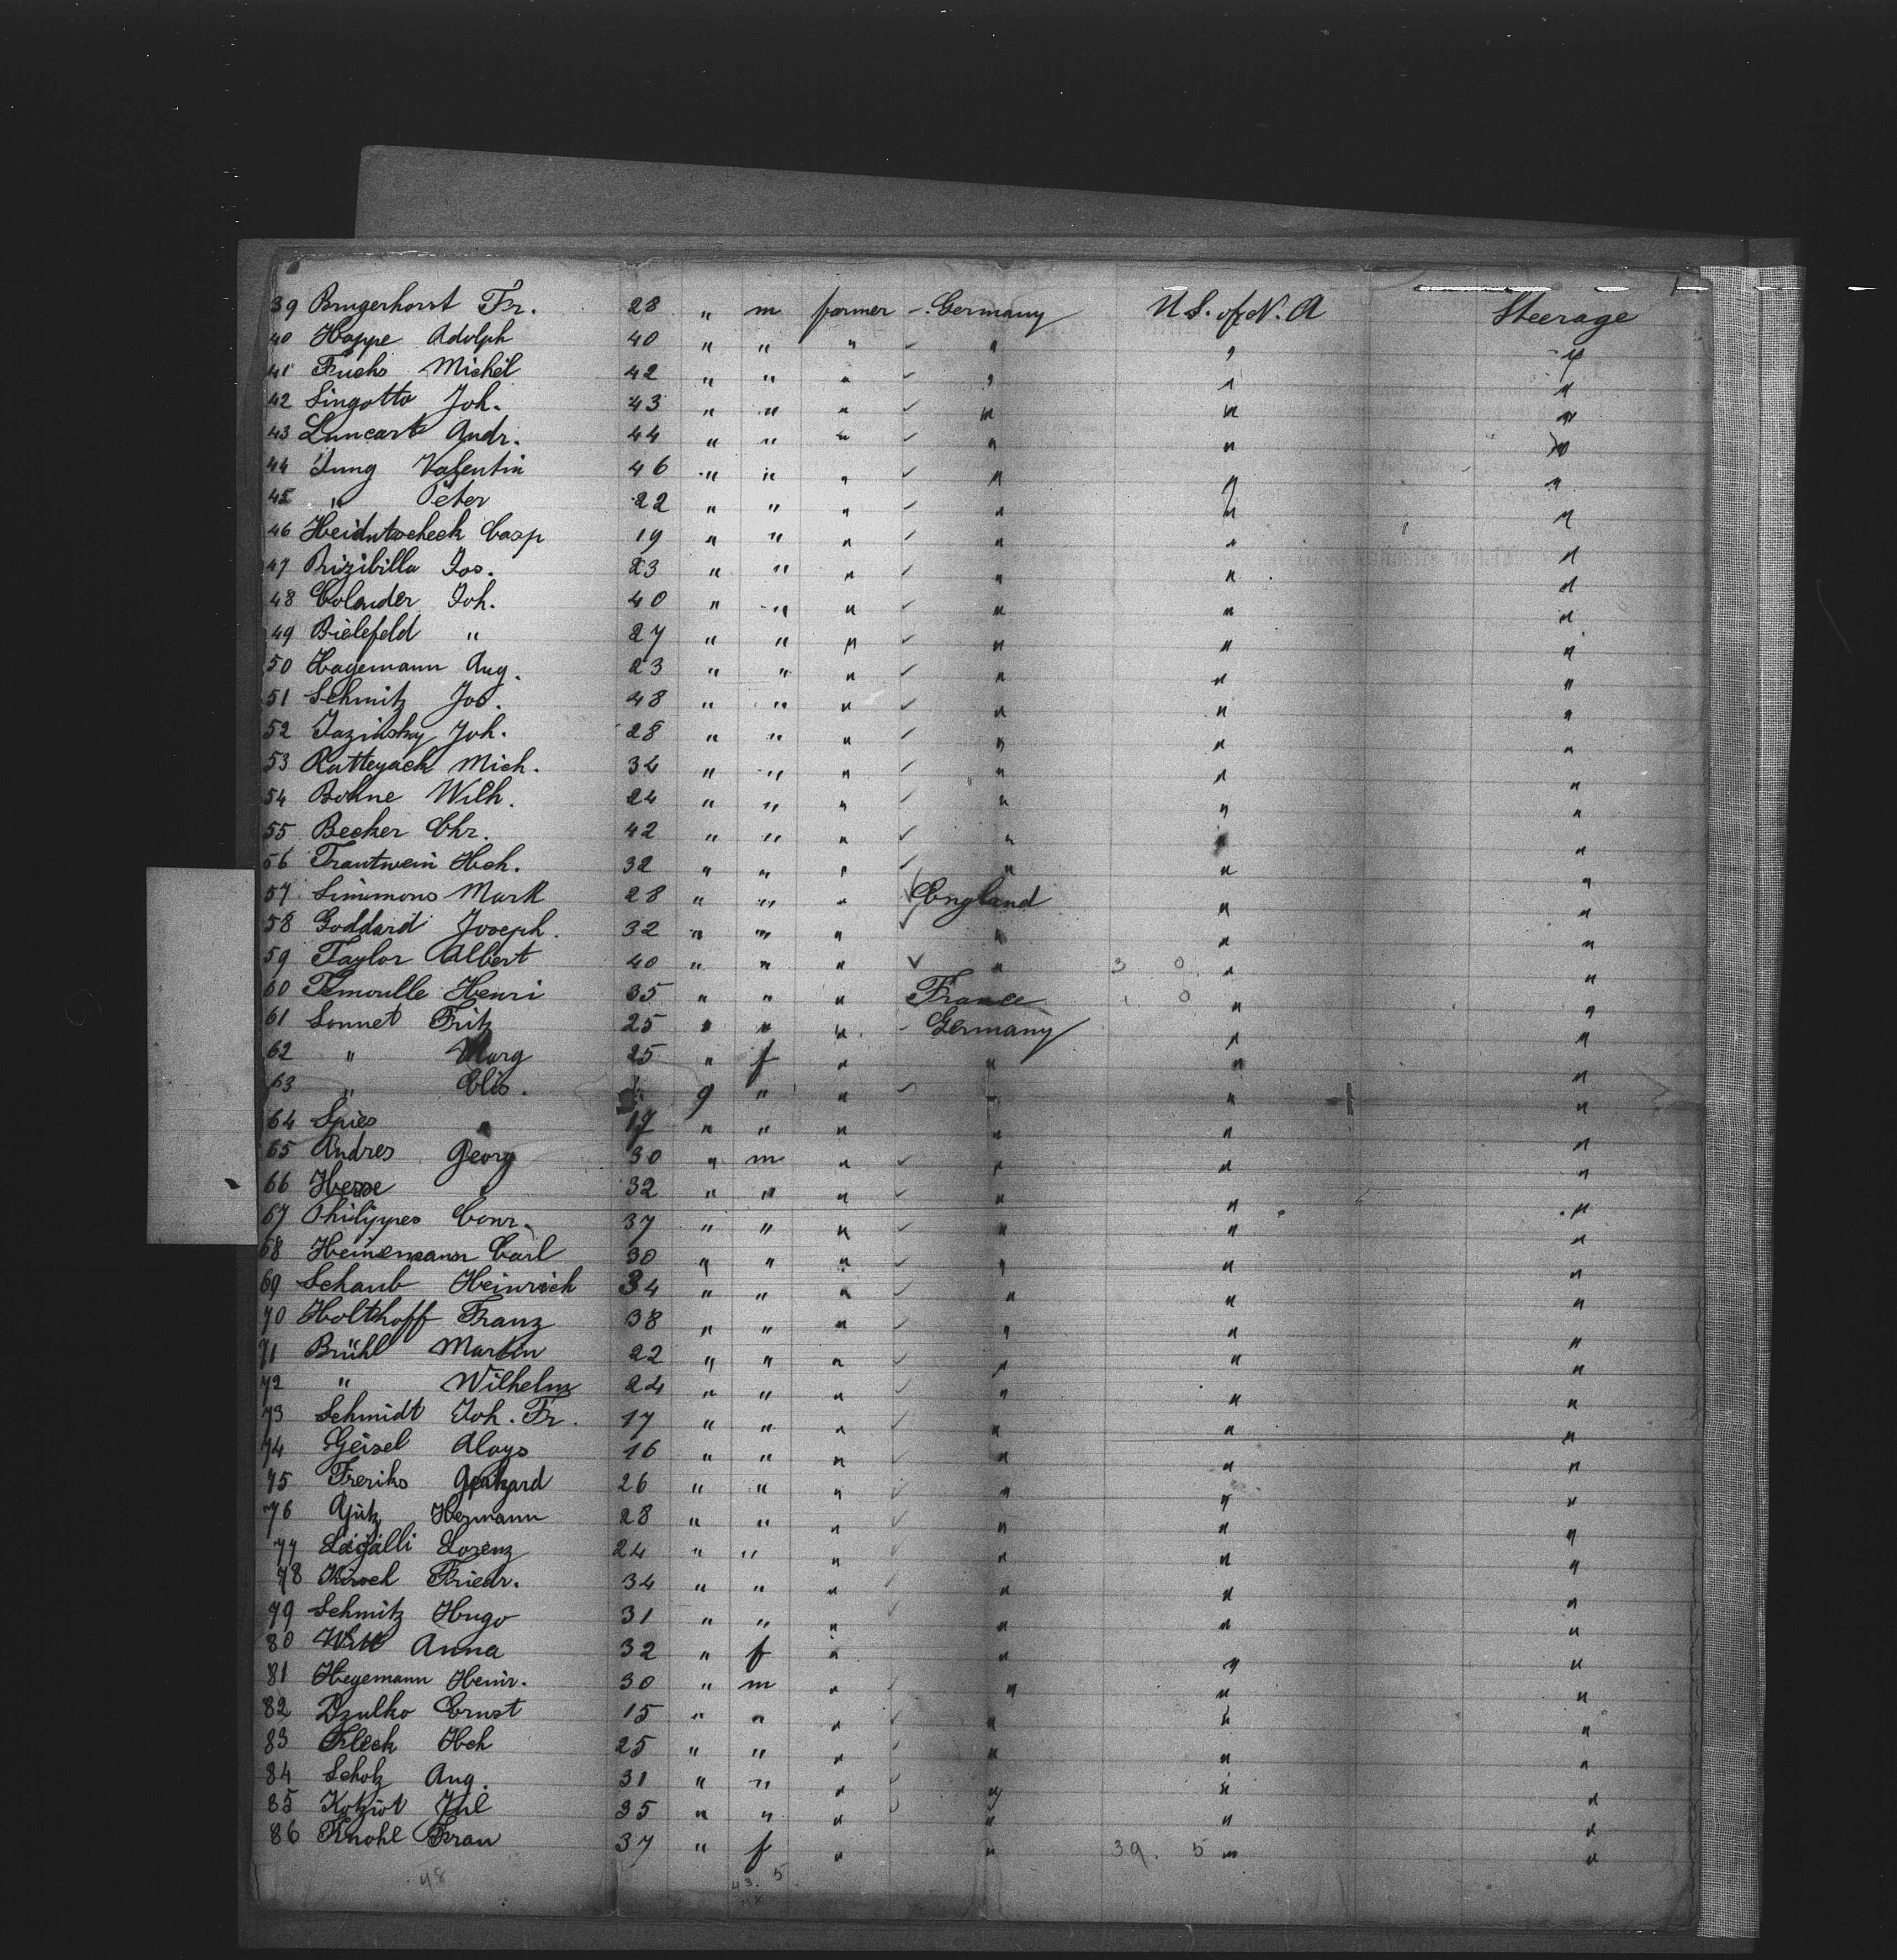 39 Brugerhorst Fr. 28 " m farmer - Germany U S. of N. A Steerage
40 Happe Adolph 40 " " " " " "
41 Fuchs Michel 42 " " " " " "
42 Singotto Joh. 43 " " " " " "
43 Luncart Andr. 44 " " " " " "
44 Jung Valentin 46 " " " " " "
45 " Peter 22 " " " " " "
46 Casp 19 " " " " " "
47 Prizibilla Jos. 23 " " " " " "
48 Colander Joh. 40 " " " " " "
49 Bielefeld " 27 " " " " " "
50 Hagemann Aug. 23 " " " " " "
51 Schmitz Jos. 48 " " " " " "
52 Jazinsky Joh. 28 " " " " " "
53 Ratteyack Mich. 34 " " " " " "
54 Bohne Wilh. 24 " " " " " "
55 Becker Chr. 42 " " " " " "
56 Trautwein Hch. 32 " " " " " "
57 Simmons Mark 28 " " " England " "
58 Goddard Joseph. 32 " " " " " "
59 Taylor Albert 40 " " " " 3 0 " "
60 Temoulle Henri 35 " " " France 1 0 " "
61 Sonnet Fritz 25 " " " - Germany " "
62 " Marg 25 " f " " " "
63 " Elis. 9 " " " " "
64 Spies " 17 " " " " " "
65 Andres Georg 30 " m " " " "
66 Hesse " 32 " " " " " "
67 Philippes Conr. 37 " " " " " "
68 Heinemann Carl 30 " " " " " "
69 Schaub Heinrich 34 " " " " " "
70 Holthoff Franz 38 " " " " " "
71 Brühl Martin 22 " " " " " "
72 " Wilhelm 24 " " " " " "
73 Schmidt Joh. Fr. 17 " " " " " "
74 Geisel Aloys 16 " " " " " "
75 Freriks Gerhard 26 " " " " " "
76 Hermann 28 " " " " " "
77 Lorenz 24 " " " " " "
78 Friedr. 34 " " " " " "
79 Schmitz Hugo 31 " " " " " "
80 Witt Anna 32 " f " " " "
81 Hegemann Heinr. 30 " m " " " "
82 Dzulko Ernst 15 " " " " " "
83 Fleck Hch 25 " " " " " "
84 Scholz Aug. 31 " " " " " "
85 Kotziot Jul 35 " " " " " "
86 Knohl Frau 37 " f " " 39. 5 " "
48 43. 5
48